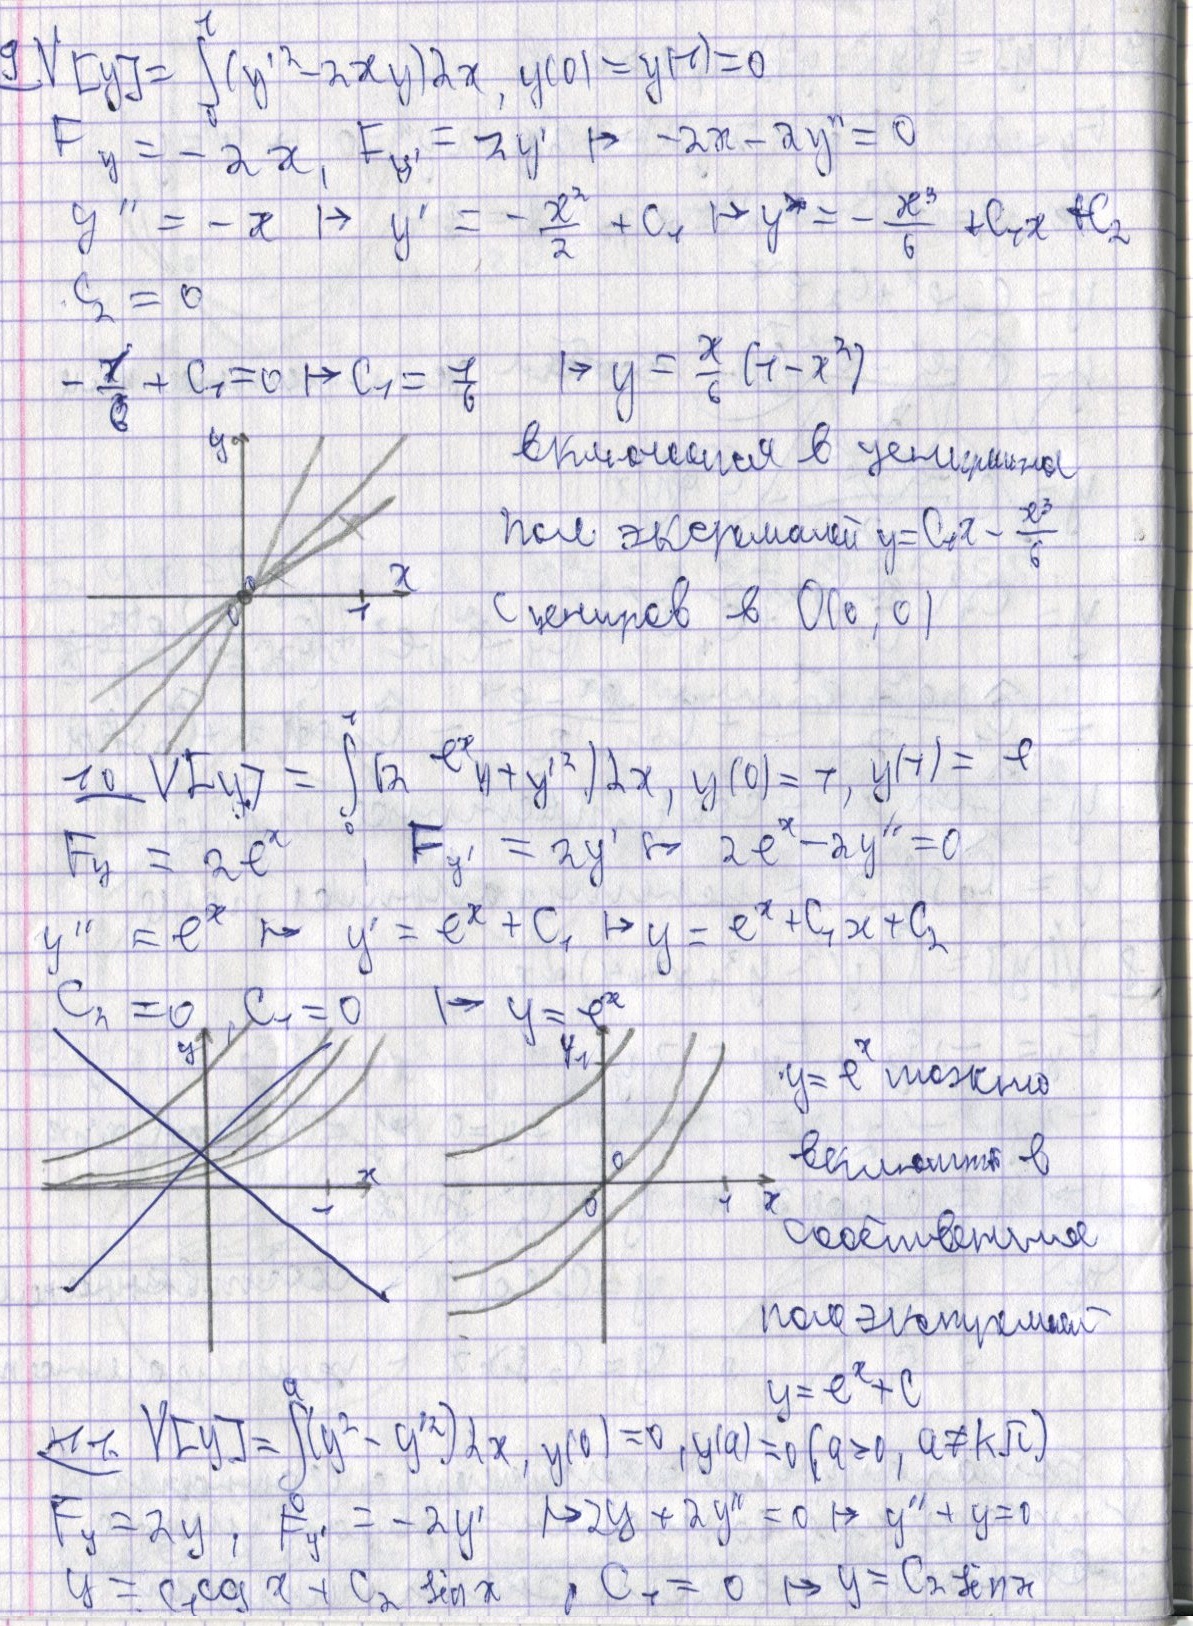 9 V[y] = ∫₀¹ (y'² - 2xy) dx, y(0) = y(1) = 0
F_y = -2x, F_y' = 2y' ↦ -2x - 2y'' = 0
y'' = -x ↦ y' = -x²/2 + C₁ ↦ y = -x³/6 + C₁x + C₂
C₂ = 0
-1/6 + C₁ = 0 ↦ C₁ = 1/6 ↦ y = x/6 (1 - x²)
y
включается в
поле экстремалей y = C₁x - x³/6
x
0
0
1
с центров в O(0, 0)
10 V[y] = ∫₀¹ (2e^x y + y'²) dx, y(0) = 1, y(1) = e
F_y = 2e^x, F_y' = 2y' ↦ 2e^x - 2y'' = 0
y'' = e^x ↦ y' = e^x + C₁ ↦ y = e^x + C₁x + C₂
C₂ = 0, C₁ = 0 ↦ y = e^x
y
x
1
y
1
0
0
1
x
y = e^x можно
включить в
собственное
поле экстремалей
y = e^x + C
11. V[y] = ∫₀^a (y² - y'²) dx, y(0) = 0, y(a) = 0 (a > 0, a ≠ kπ)
F_y = 2y, F_y' = -2y' ↦ 2y + 2y'' = 0 ↦ y'' + y = 0
y = C₁ cos x + C₂ sin x, C₁ = 0 ↦ y = C₂ sin x